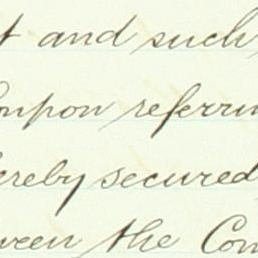 and such
oupon referri
ereby secured
ween the Com